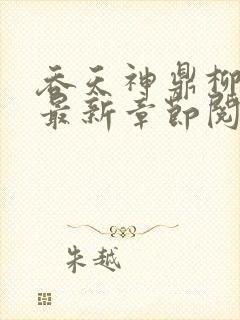 吞天神鼎柳
最新章节阅
朱越